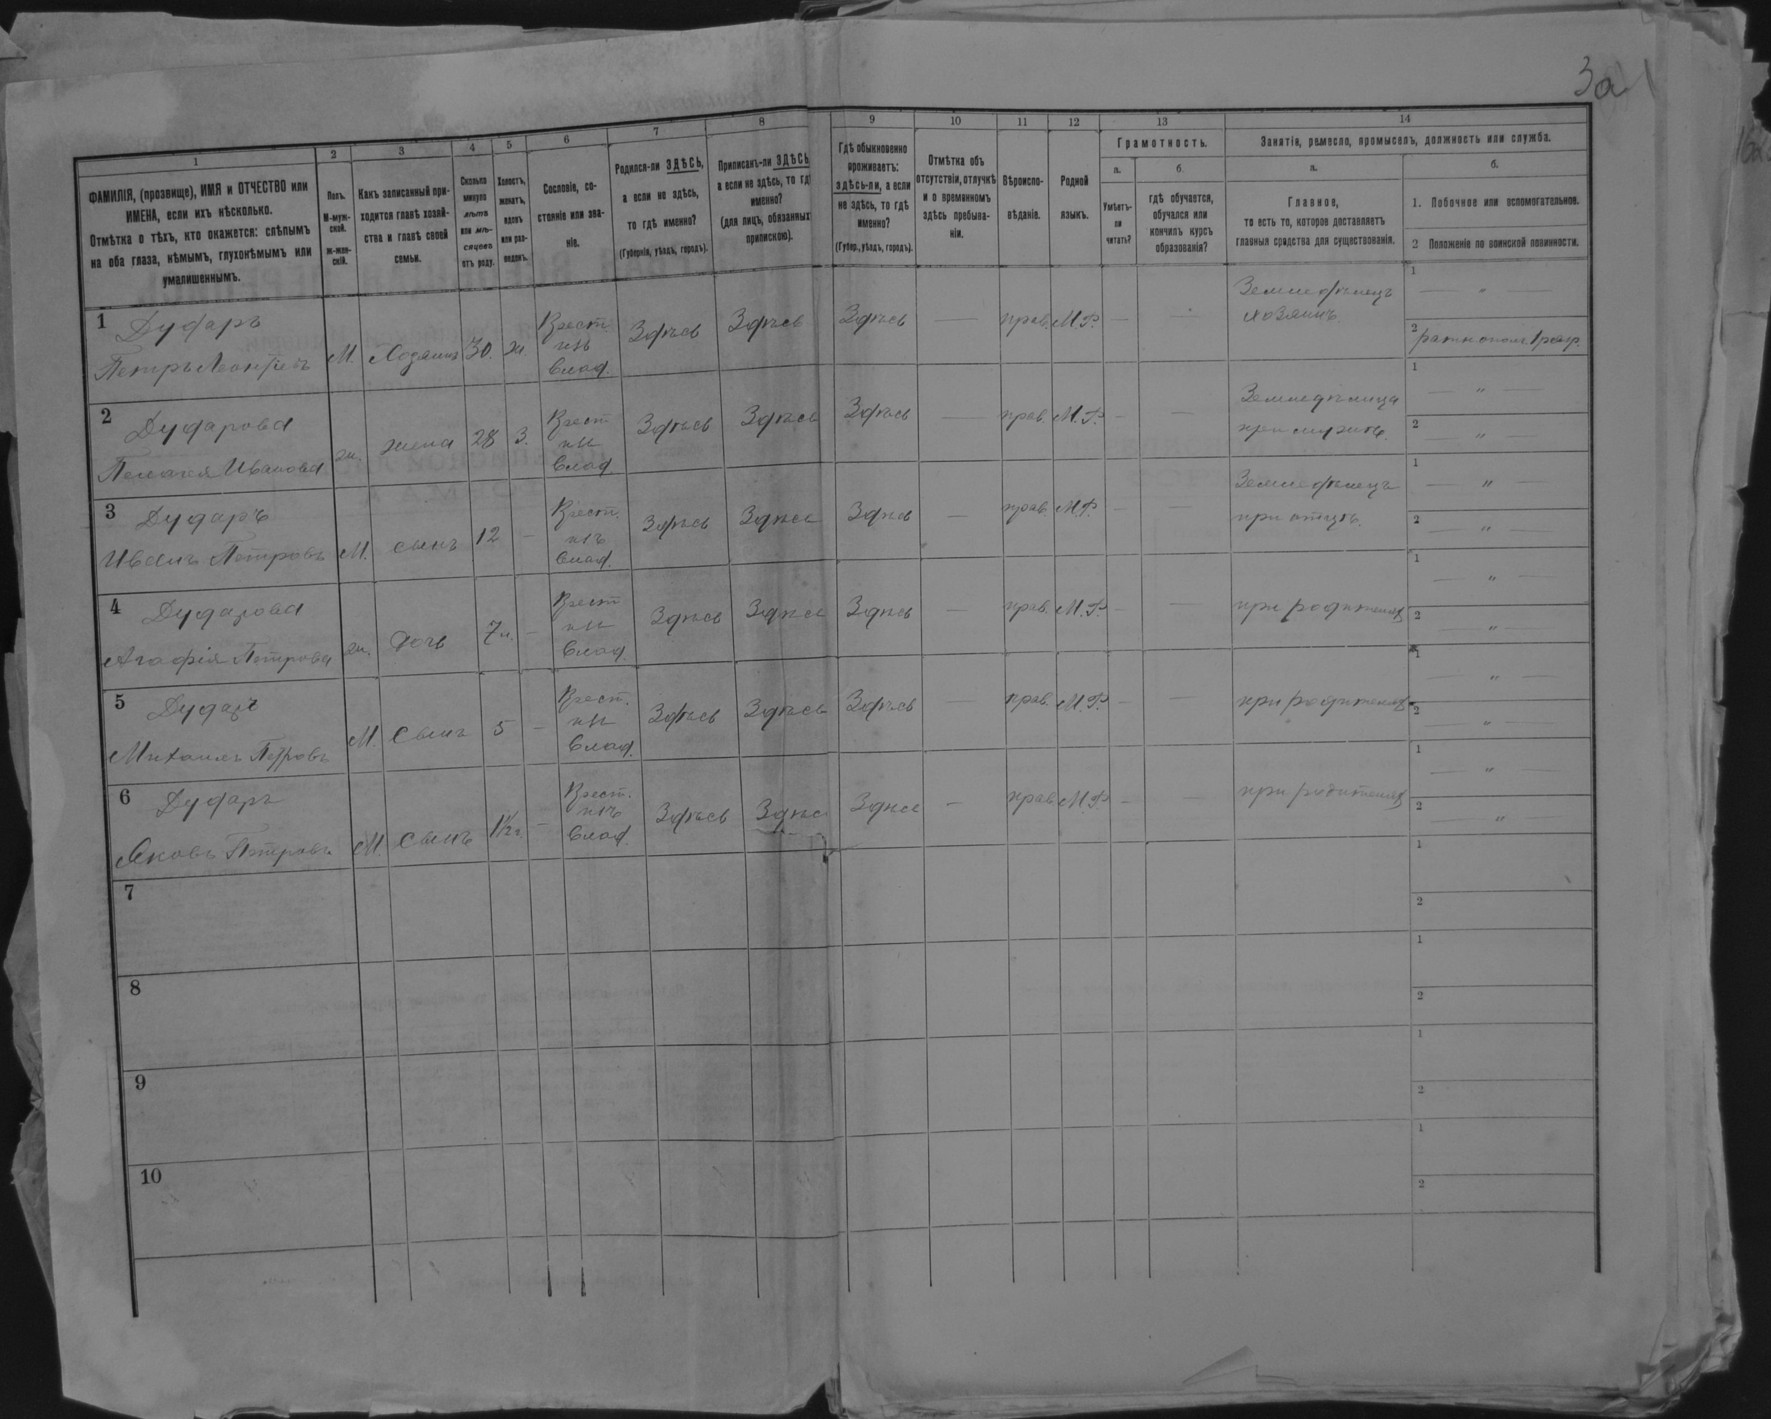 За
1 2 3 4 5 6 7 8 9 10 11 12 13 14
ФАМИЛІЯ, (прозвище), ИМЯ и ОТЧЕСТВО или
ИМЕНА, если ихъ нѣсколько.
Отмѣтка о тѣхъ, кто окажется: слѣпымъ
на оба глаза, нѣмымъ, глухонѣмымъ или
умалишеннымъ.
Полъ.
М-муж-
ской.
Ж-жен-
скій.
Какъ записанный при-
ходится главѣ хозяй-
ства и главѣ своей
семьи.
Сколько
минуло
лѣтъ
или мѣ-
сяцевъ
отъ роду.
Холостъ,
женатъ,
вдовъ
или раз-
веденъ.
Сословіе, со-
стояніе или зва-
ніе.
Родился-ли ЗДѢСЬ,
а если не здѣсь,
то гдѣ именно?
(Губернія, уѣздъ, городъ).
Приписанъ-ли ЗДѢСЬ
а если не здѣсь, то гдѣ
именно?
(для лицъ, обязанныхъ
припискою).
Гдѣ обыкновенно
проживаетъ:
здѣсь-ли, а если
не здѣсь, то гдѣ
именно?
(Губер., уѣздъ, городъ).
Отмѣтка объ
отсутствіи, отлучкѣ
и о временномъ
здѣсь пребыва-
ніи.
Вѣроиспо-
вѣданіе.
Родной
языкъ.
Грамотность.
а.
Умѣетъ-
ли
читать?
б.
гдѣ обучается,
обучался или
кончилъ курсъ
образованія?
Занятіе, ремесло, промыселъ, должность или служба.
а.
Главное,
то есть то, которое доставляетъ
главныя средства для существованія.
б.
1. Побочное или вспомогательное.
2 Положеніе по воинской повинности.
1 Дударъ
Петръ Леонтіевъ
М. Хозяинъ 30. ж. Крест. изъ влад. Здѣсь Здѣсь Здѣсь — прав. М.Р. — —
Земледѣлецъ
хозяинъ.
1 — " —
2 ратн. ополч. 1 разр.
2 Дударова
Пелагея Иванова
ж. жена 28 З. Крест. изъ влад. Здѣсь Здѣсь Здѣсь — прав. М.Р. — —
Земледѣлица
при мужѣ.
1 — " —
2 — " —
3 Дударъ
Иванъ Петровъ
М. сынъ 12 — Крест. изъ влад. Здѣсь Здѣсь Здѣсь — прав. М.Р. — —
Земледѣлецъ
при отцѣ.
1 — " —
2 — " —
4 Дударова
Агафія Петрова
ж. дочь 7 — Крест. изъ влад. Здѣсь Здѣсь Здѣсь — прав. М.Р. — —
при родителяхъ
1 — " —
2 — " —
5 Дударъ
Михаилъ Петровъ
М. Сынъ 5 — Крест. изъ влад. Здѣсь Здѣсь Здѣсь — прав. М.Р. — —
при родителяхъ
1 — " —
2 — " —
6 Дударъ
Яковъ Петровъ
М. Сынъ 1½ г. — Крест. изъ влад. Здѣсь Здѣсь Здѣсь — прав. М.Р. — —
при родителяхъ
1 — " —
2 — " —
7
1
2
8
1
2
9
1
2
10
1
2